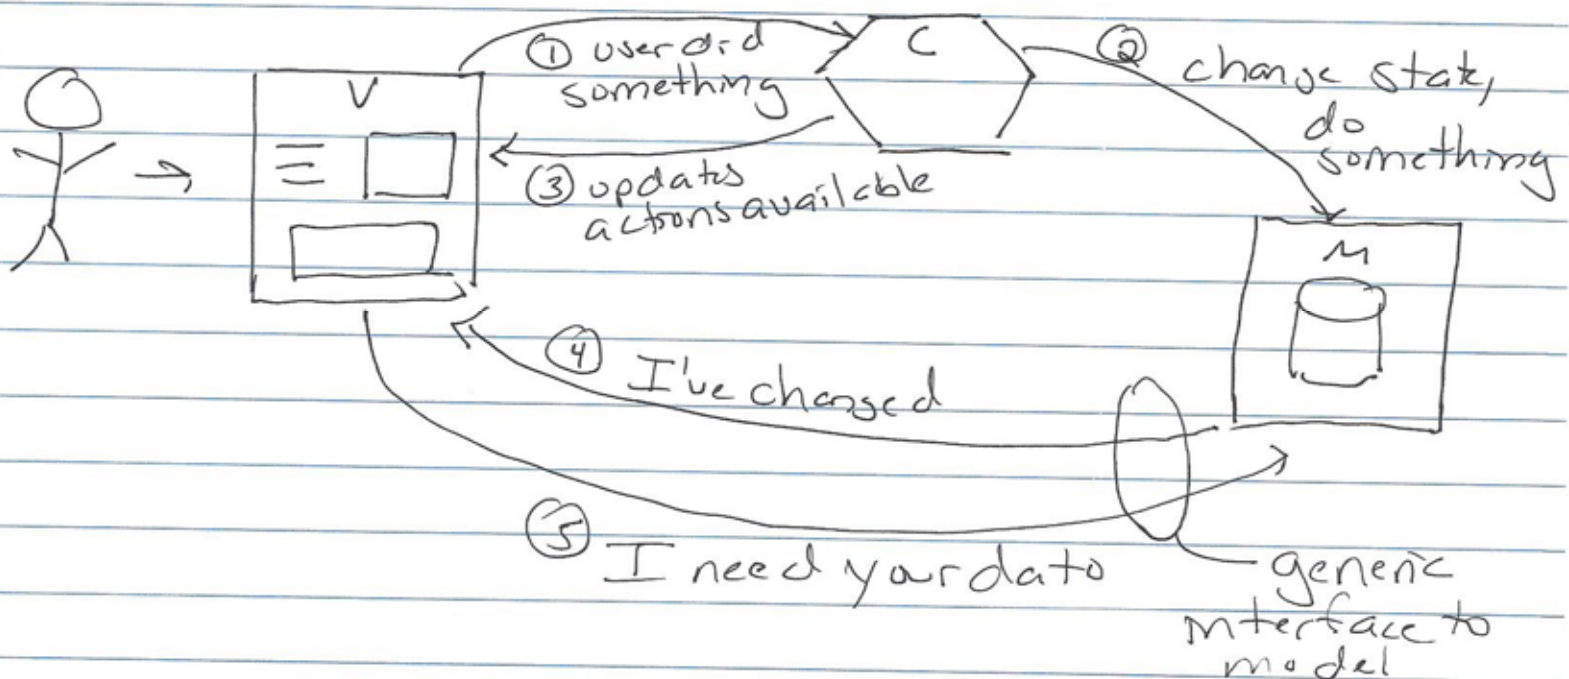 V
① user did
something
C
② change state,
do
something
③ updates
actions available
M
④ I've changed
⑤ I need your data
generic
interface to
model